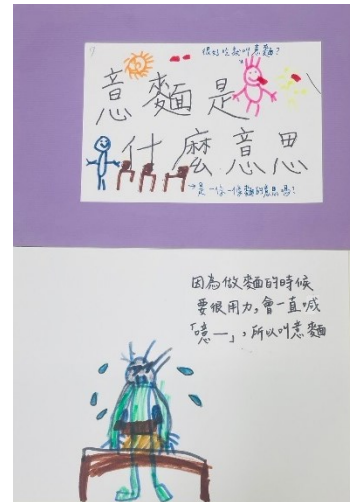 很好吃就叫意麵?
意麵是
什麼意思
→是一條一條麵的意思嗎?
因為做麵的時候
要很用力,會一直喊
「噫—」,所以叫意麵